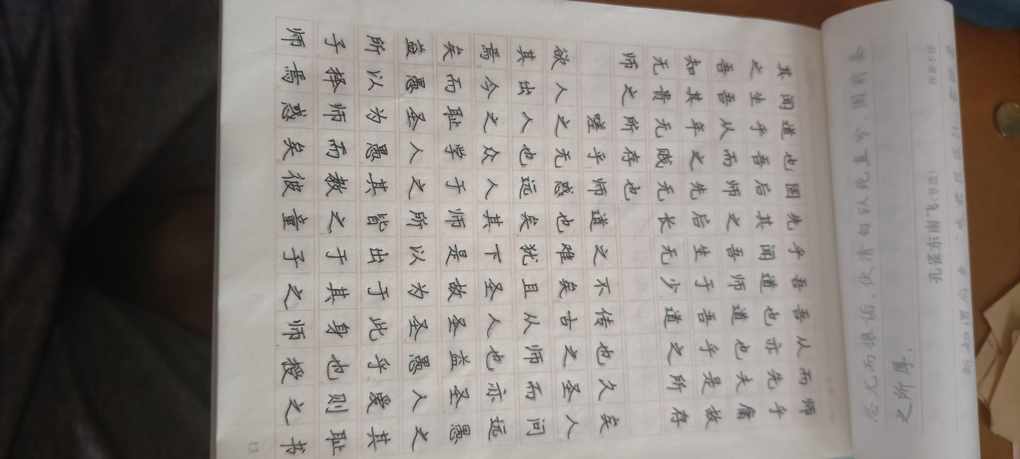 忍尤而攘诟。伏清白以死直兮，固前圣
之所厚.
孔雀东南飞(并序)
其闻道也固先乎吾吾从而师
之生乎吾后其闻道也亦先乎
吾吾从而师之吾师道也夫庸
知其年之先后生于吾乎是故
无贵无贱无长无少道之所存
师之所存也
嗟乎师道之不传也久矣
欲人之无惑也难矣古之圣人
其出人也远矣犹且从师而问
焉今之众人其下圣人也亦远
矣而耻学于师是故圣益圣愚
益愚圣人之所以为圣愚人之
所以为愚其皆出于此乎爱其
子择师而教之于其身也则耻
师焉惑矣彼童子之师授之书